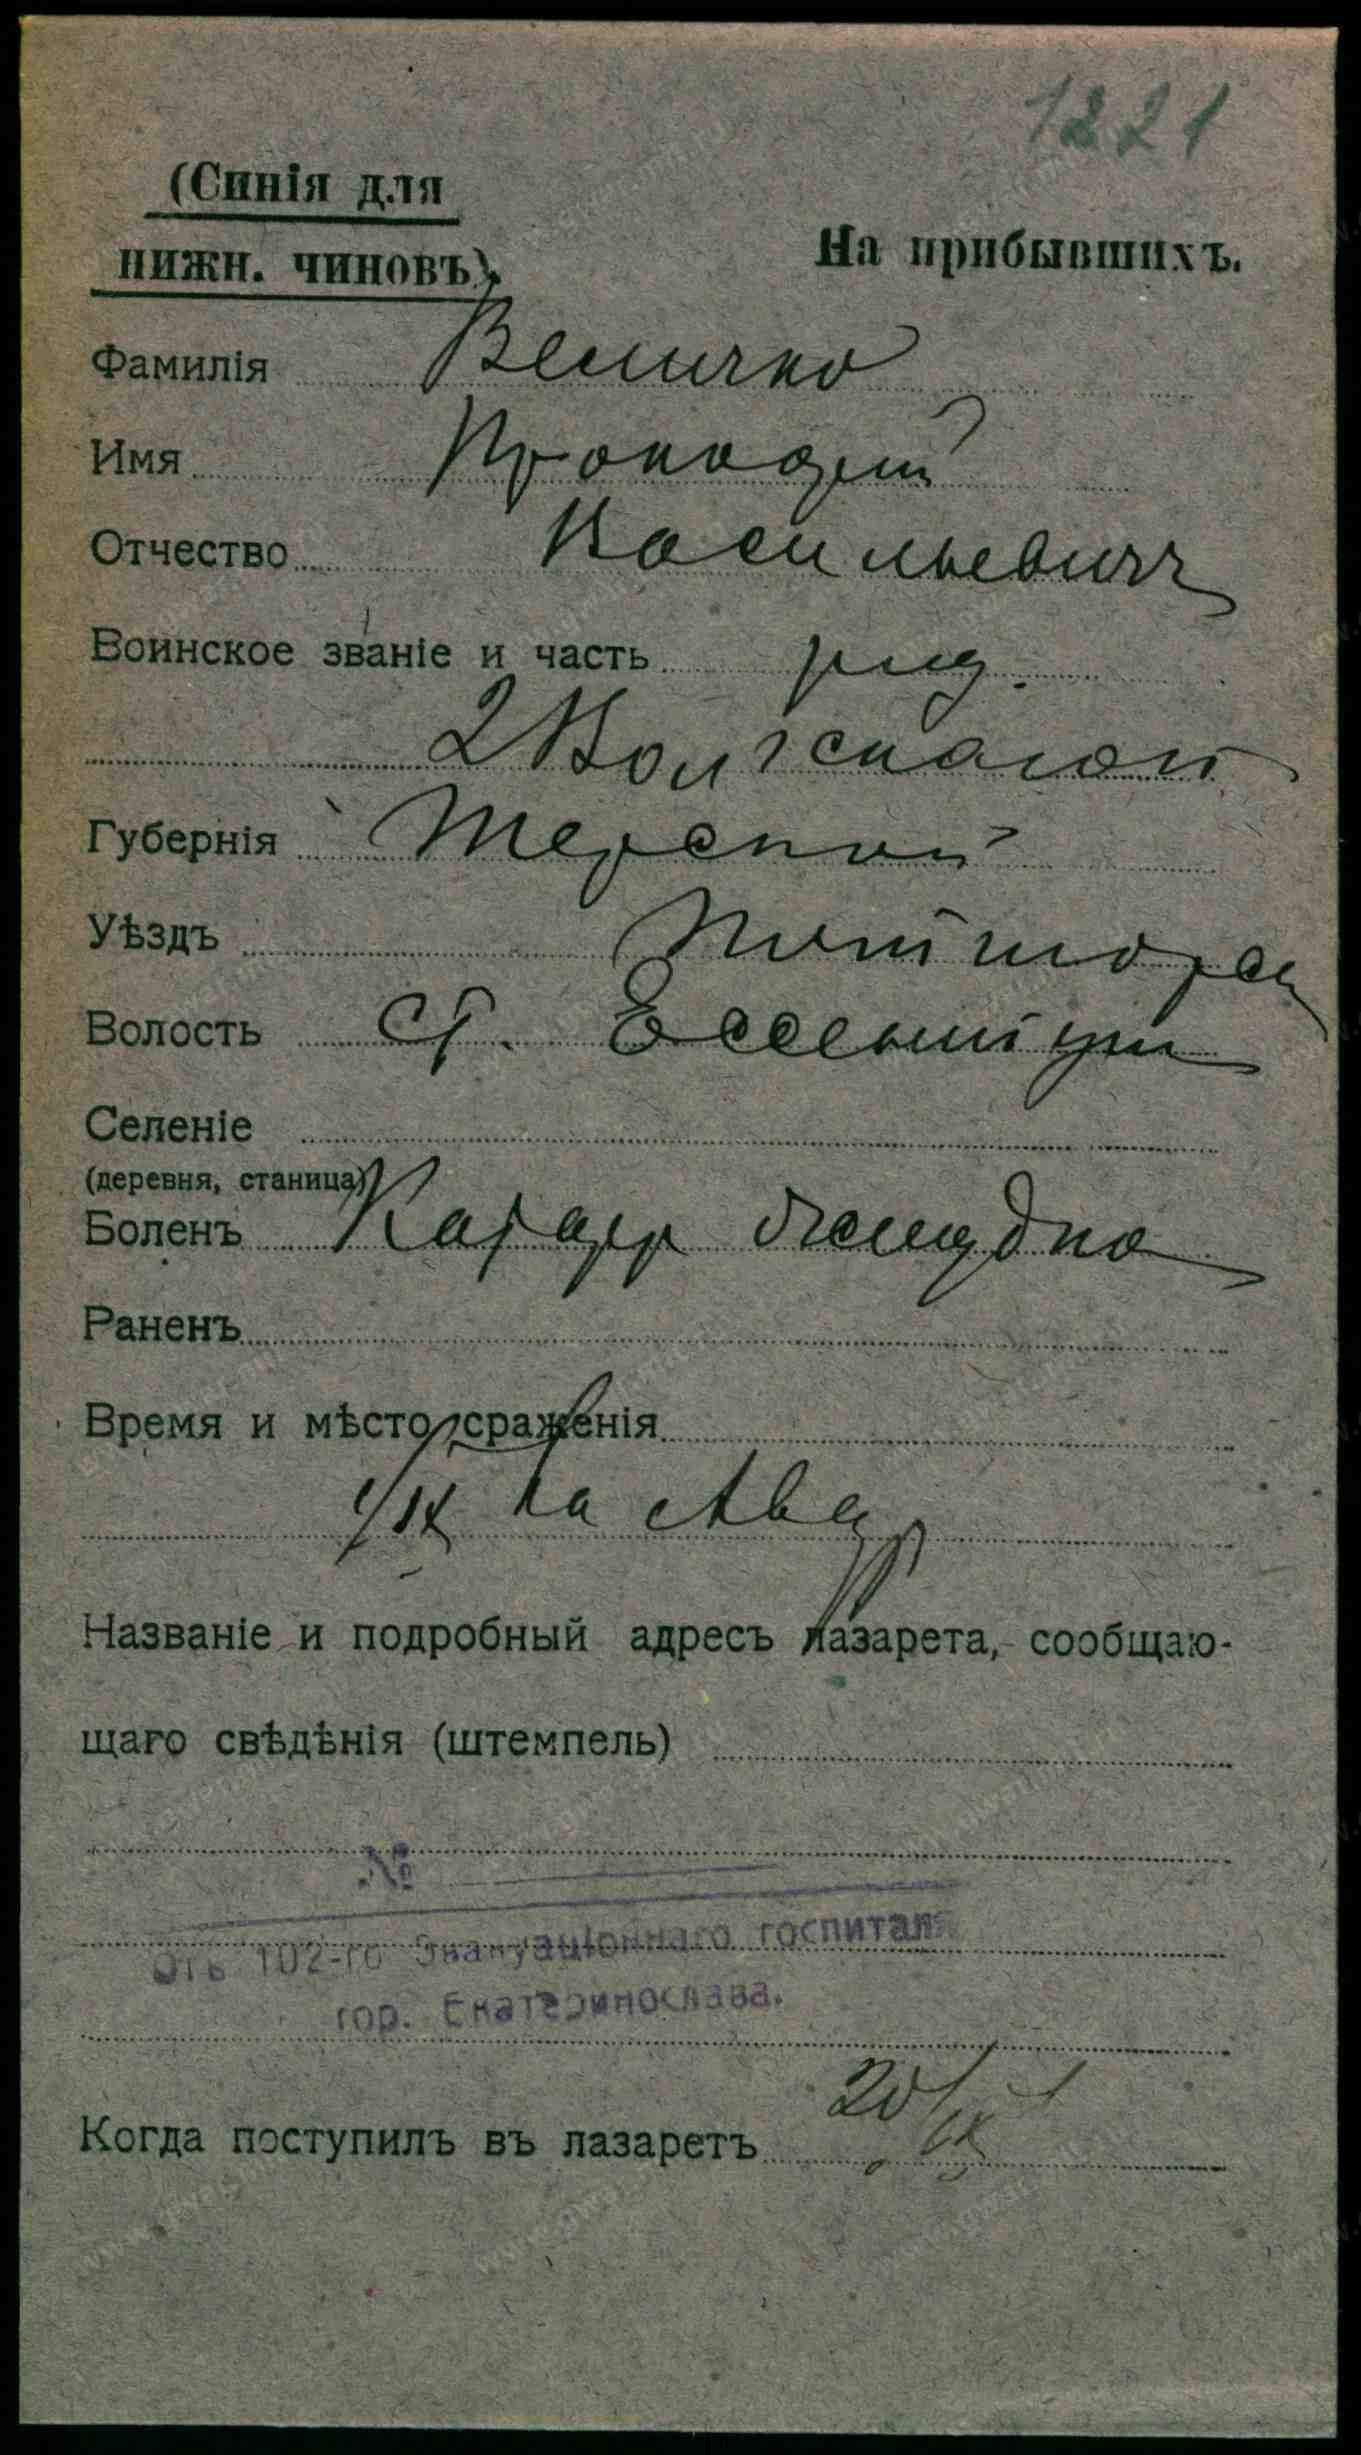 1221
(Синія для
нижн. чиновъ).
На прибывшихъ.
Фамилія Величко
Имя
Отчество Васильевичъ
Воинское званіе и часть ряд.
2 Волжскаго п
Губернія Терской
Уѣздъ Пятигорск
Волость ст. Ессентуки
Селеніе
(деревня, станица)
Боленъ Катарр желудка
Раненъ
Время и мѣсто сраженія
1/IX на Авст
Названіе и подробный адресъ лазарета, сообщаю-
щаго свѣдѣнія (штемпель)
№
Отъ 102-го Эвакуаціоннаго госпиталя
гор. Екатеринослава.
Когда поступилъ въ лазаретъ 20/IX